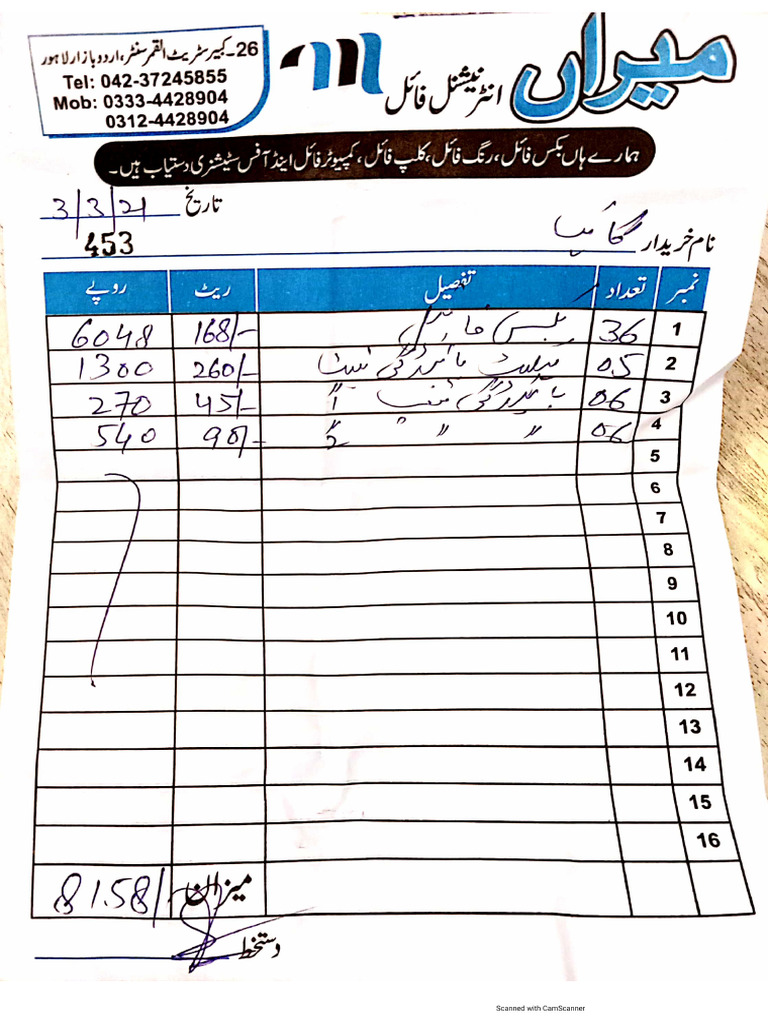 میراں
انٹرنیشنل فائل
26-کبیر سٹریٹ القمر سنٹر، اردو بازار لاہور
Tel: 042-37245855
Mob: 0333-4428904
0312-4428904
ہمارے ہاں بکس فائل، رنگ فائل، کلپ فائل، کمپیوٹر فائل اینڈ آفس سٹیشنری دستیاب ہیں۔
تاریخ 3/3/21
نام خریدار
453
نمبر تعداد تفصیل ریٹ روپے
1 36 بکس فائل 168/- 6048
2 05 260/- 1300
3 06 1" 45/- 270
4 06 " " 2" 90/- 540
5
6
7
8
9
10
11
12
13
14
15
16
میزان 8158/
دستخط
Scanned with CamScanner